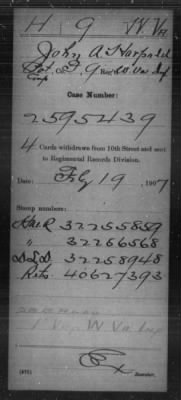 H 9 W Va
John A Harpold
Co. F, 9 Reg. W. Va. Inf
Corp
Case Number:
2595439
4 Cards withdrawn from 10th Street and sent
to Regimental Records Division.
Date: Feby 19, 1907
Stamp numbers:
32255859
" 32266568
32258948
Rets. 40627393
1 W Va. Inf
Searcher.